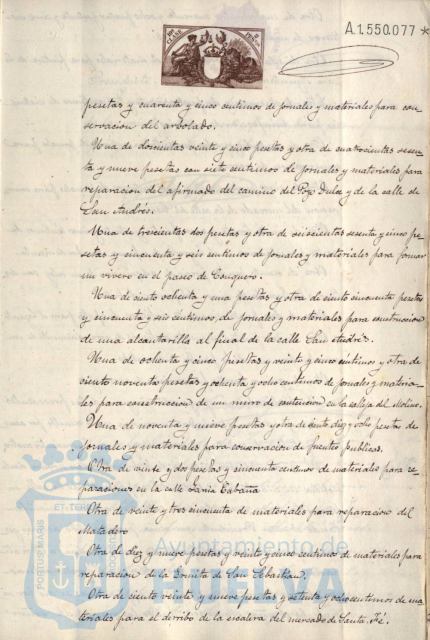 A.1.550.077 *
pesetas y cuarenta y cinco centimos de jornales y materiales para con
servacion del arbolado.
Una de doscientas veinte y cinco pesetas y otra de cuatrocientas sesen
ta y nueve pesetas con siete centimos de jornales y materiales para
reparacion del afirmado del camino del Pozo Dulce y de la calle de
San Andrés.
Una de trescientas dos pesetas y otra de seiscientas sesenta y cinco pe
setas y cincuenta y seis centimos de jornales y materiales para formar
un vivero en el paseo de Conquero.
Una de ciento ochenta y una pesetas y otra de ciento cincuenta pesetas
y cincuenta y seis centimos de jornales y materiales para construccion
de una alcantarilla al final de la calle San Andrés.
Una de ochenta y cinco pesetas y veinte y cinco centimos y otra de
ciento noventa pesetas y ochenta y ocho centimos de jornales y materia-
les para construccion de un muro de contencion en la calleja del Molino.
Una de noventa y nueve pesetas y otra de ciento diez y ocho pesetas de
jornales y materiales para conservacion de fuentes publicas.
Otra de veinte y dos pesetas y cincuenta centimos de materiales para re-
paraciones en la calle
Otra de veinte y tres cincuenta de materiales para reparacion del
Matadero
Otra de diez y nueve pesetas y veinte y cinco centimos de materiales para
reparacion de la Ermita de San Sebastian.
Otra de ciento veinte y nueve pesetas y setenta y ocho centimos de ma
teriales para el derribo de la escalera del mercado de Santa Fé.
Ayuntamiento de
HUELVA
PORTUS MARIS